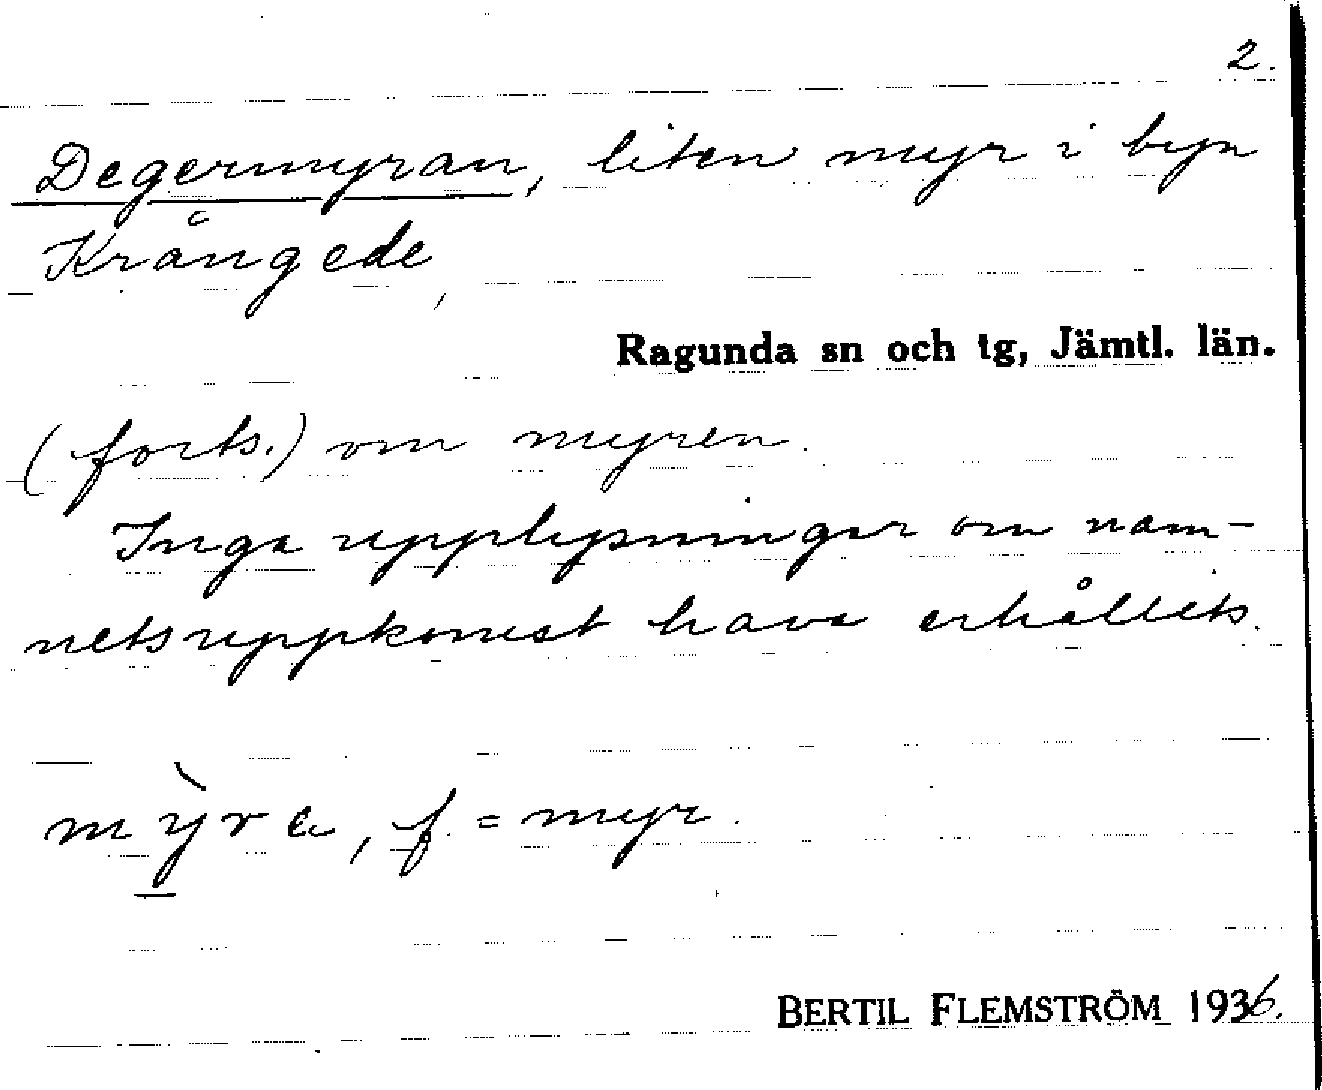 2.
Degermyran, liten myr i byn
Krångede,
Ragunda sn och tg, Jämtl. län.
(forts.) om myren.
Inga upplysningar om nam-
netsuppkomst hava erhållits.
mỳ̱ra, f. = myr.
BERTIL FLEMSTRÖM 1936.